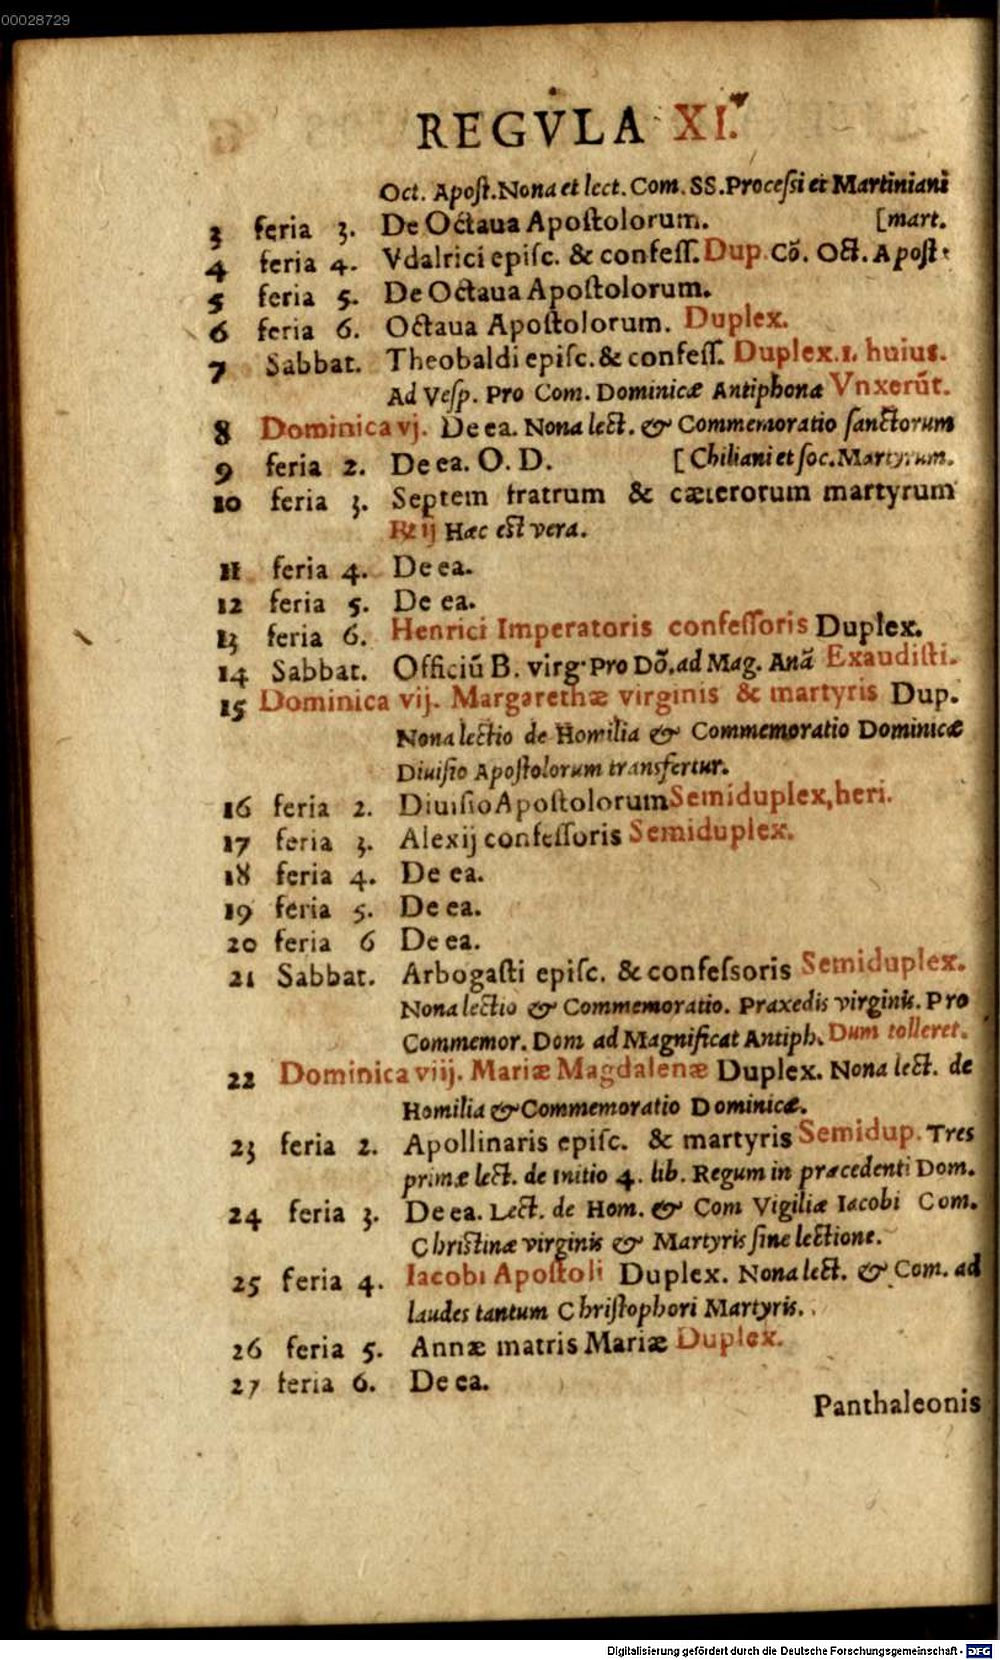 00028729
REGVLA XI.
Oct. Apoſt. Nona et lect. Com. SS. Proceſsi et Martiniani
3 feria 3. De Octaua Apoſtolorum. [mart.
4 feria 4. Vdalrici epiſc. & confeſſ. Dup. Cõ. Oct. Apoſt.
5 feria 5. De Octaua Apoſtolorum.
6 feria 6. Octaua Apoſtolorum. Duplex.
7 Sabbat. Theobaldi epiſc. & confeſſ. Duplex. 1. huius.
Ad Veſp. Pro Com. Dominicæ Antiphona Vnxerũt.
8 Dominica vj. De ea. Nona lect. & Commemoratio ſanctorum
9 feria 2. De ea. O. D. [Chiliani et ſoc. Martyrum.
10 feria 3. Septem fratrum & cæterorum martyrum
℟ ij Hæc eſt vera.
11 feria 4. De ea.
12 feria 5. De ea.
13 feria 6. Henrici Imperatoris confeſſoris Duplex.
14 Sabbat. Officiũ B. virg. Pro Dõ. ad Mag. Anã Exaudiſti.
15 Dominica vij. Margarethæ virginis & martyris Dup.
Nona lectio de Homilia & Commemoratio Dominicæ
Diuiſio Apoſtolorum transfertur.
16 feria 2. Diuiſio Apoſtolorum Semiduplex, heri.
17 feria 3. Alexij confeſſoris Semiduplex.
18 feria 4. De ea.
19 feria 5. De ea.
20 feria 6 De ea.
21 Sabbat. Arbogaſti epiſc. & confeſsoris Semiduplex.
Nona lectio & Commemoratio. Praxedis virginis. Pro
Commemor. Dom ad Magnificat Antiph. Dum tolleret.
22 Dominica viij. Mariæ Magdalenæ Duplex. Nona lect. de
Homilia & Commemoratio Dominicæ.
23 feria 2. Apollinaris epiſc. & martyris Semidup. Tres
primæ lect. de initio 4. lib. Regum in præcedenti Dom.
24 feria 3. De ea. Lect. de Hom. & Com Vigiliæ Iacobi Com.
Chriſtinæ virginis & Martyris ſine lectione.
25 feria 4. Iacobi Apoſtoli Duplex. Nona lect. & Com. ad
laudes tantum Chriſtophori Martyris.
26 feria 5. Annæ matris Mariæ Duplex.
27 feria 6. De ea.
Panthaleonis
Digitalisierung gefördert durch die Deutsche Forschungsgemeinschaft - DFG